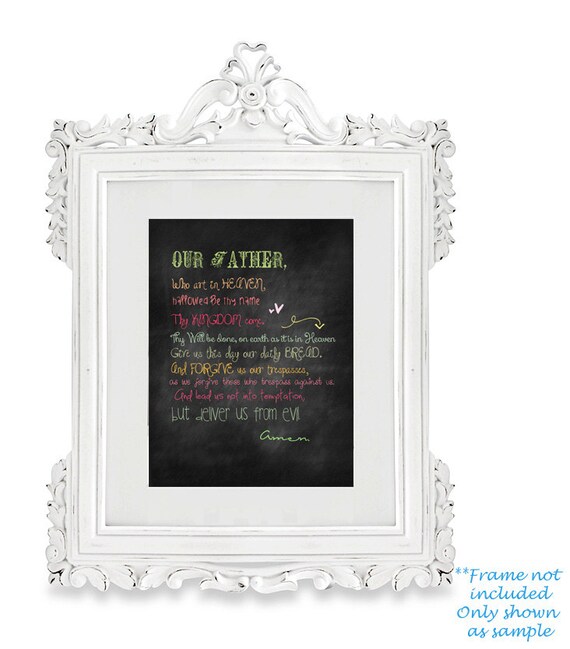 OUR FATHER,
Who art in HEAVEN,
hallowed Be thy name
Thy KINGDOM come,
Thy Will be done, on earth as it is in Heaven
Give us this day our daily BREAD.
And FORGIVE us our trespasses,
as we forgive those who trespass against us.
And lead us not into temptation,
but deliver us from evil
Amen.
**Frame not
included
Only shown
as sample